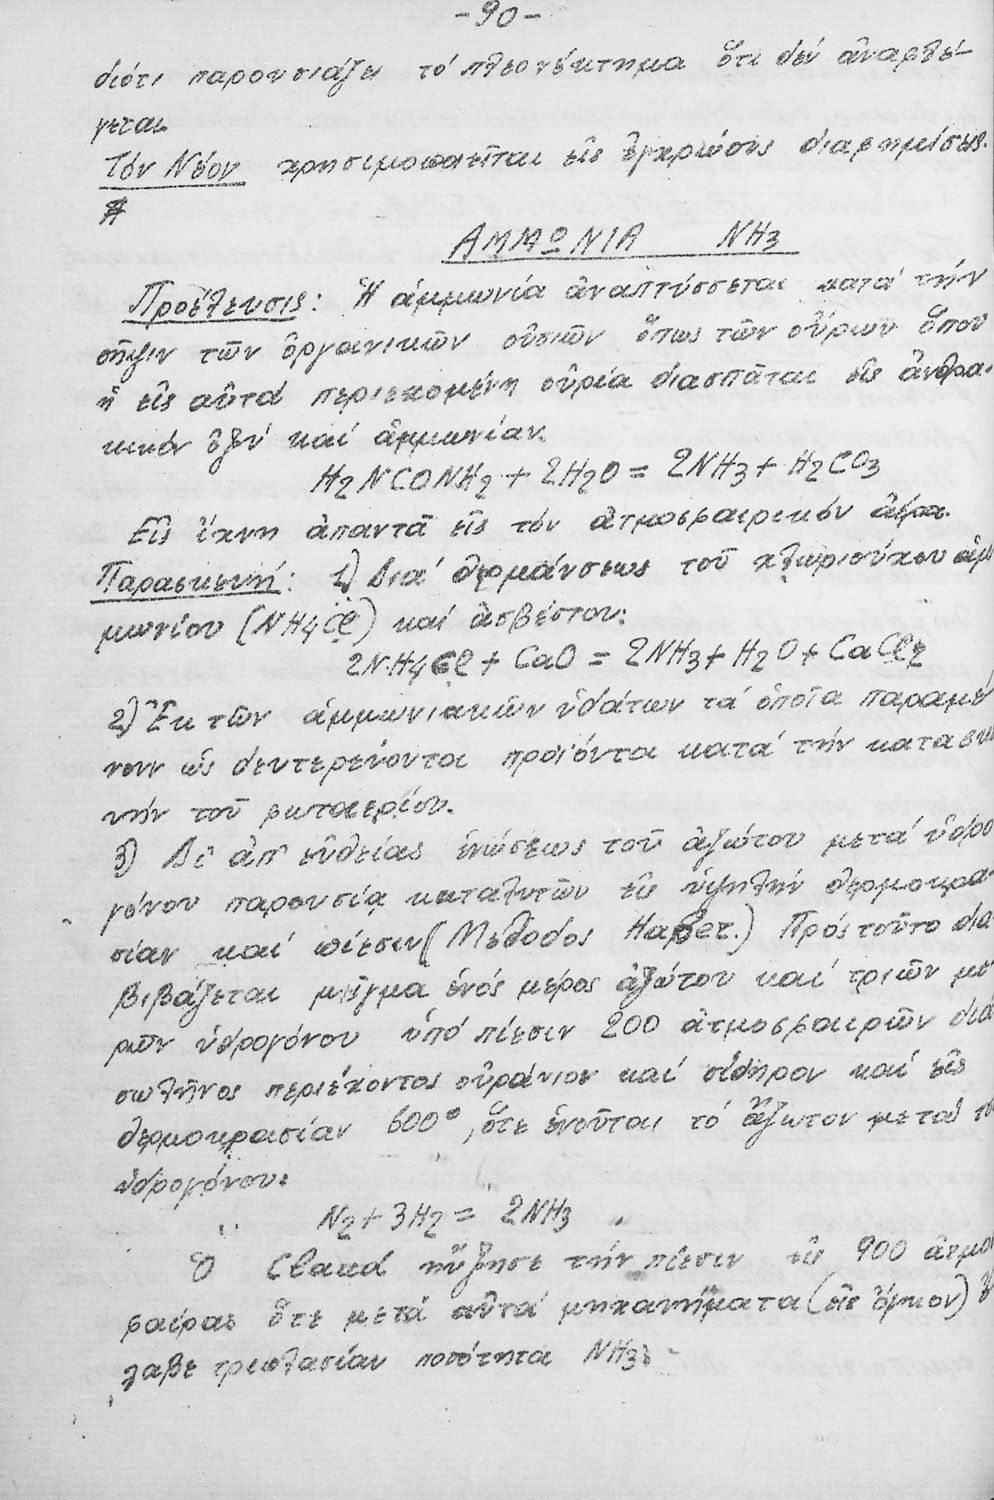 -90-
διότι παρουσιάζει τό πλεονέκτημα ὅτι δέν ἀναφλέ-
γεται
Τόν Νέον χρησιμοποιεῖται εἰς ἐγχρώσεις διαφημίσεις.
ΑΜΜΩΝΙΑ NH3
Προέλευσις: Ἡ ἀμμωνία ἀναπτύσσεται κατά τήν
σῆψιν τῶν ὀργανικῶν οὐσιῶν ὅπως τῶν οὔρων ὅπου
ἡ εἰς αὐτά περιεχομένη οὐρία διασπᾶται εἰς ἀνθρα-
κικόν ὀξύ καί ἀμμωνίαν.
H2NCONH2 + 2H2O = 2NH3 + H2CO3
Εἰς ἴχνη ἀπαντᾶ εἰς τόν ἀτμοσφαιρικόν ἀέρα.
Παρασκευή: 1) Διά θερμάνσεως τοῦ χλωριούχου ἀμ
μωνίου (NH4Cl) καί ἀσβέστου:
2NH4Cl + CaO = 2NH3 + H2O + CaCl2
2) Ἐκ τῶν ἀμμωνιακῶν ὑδάτων τά ὁποῖα παραμέ
νουν ὡς δευτερεύοντα προϊόντα κατά τήν κατασκε
υήν τοῦ φωταερίου.
3) Δι' ἀπ' εὐθείας ἑνώσεως τοῦ ἀζώτου μετά ὑδρο
γόνου παρουσίᾳ καταλυτῶν εἰς ὑψηλήν θερμοκρα-
σίαν καί πίεσιν (Μέθοδος Haber.) Πρός τοῦτο δια
βιβάζεται μῖγμα ἑνός μέρος ἀζώτου καί τριῶν με
ρῶν ὑδρογόνου ὑπό πίεσιν 200 ἀτμοσφαιρῶν διά
σωλῆνος περιέχοντος οὐράνιον καί σίδηρον καί εἰς
θερμοκρασίαν 600°, ὅτε ἑνοῦται τό ἄζωτον μετά τ
ὑδρογόνου.
N2 + 3H2 = 2NH3
Ὁ Claud ηὔξησε τήν πίεσιν εἰς 900 ἀτμο
σφαίρας ὅτε μετά αὐτά μηχανήματα (εἰς ὄγκον) ἔ
λαβε τριπλασίαν ποσότητα NH3.